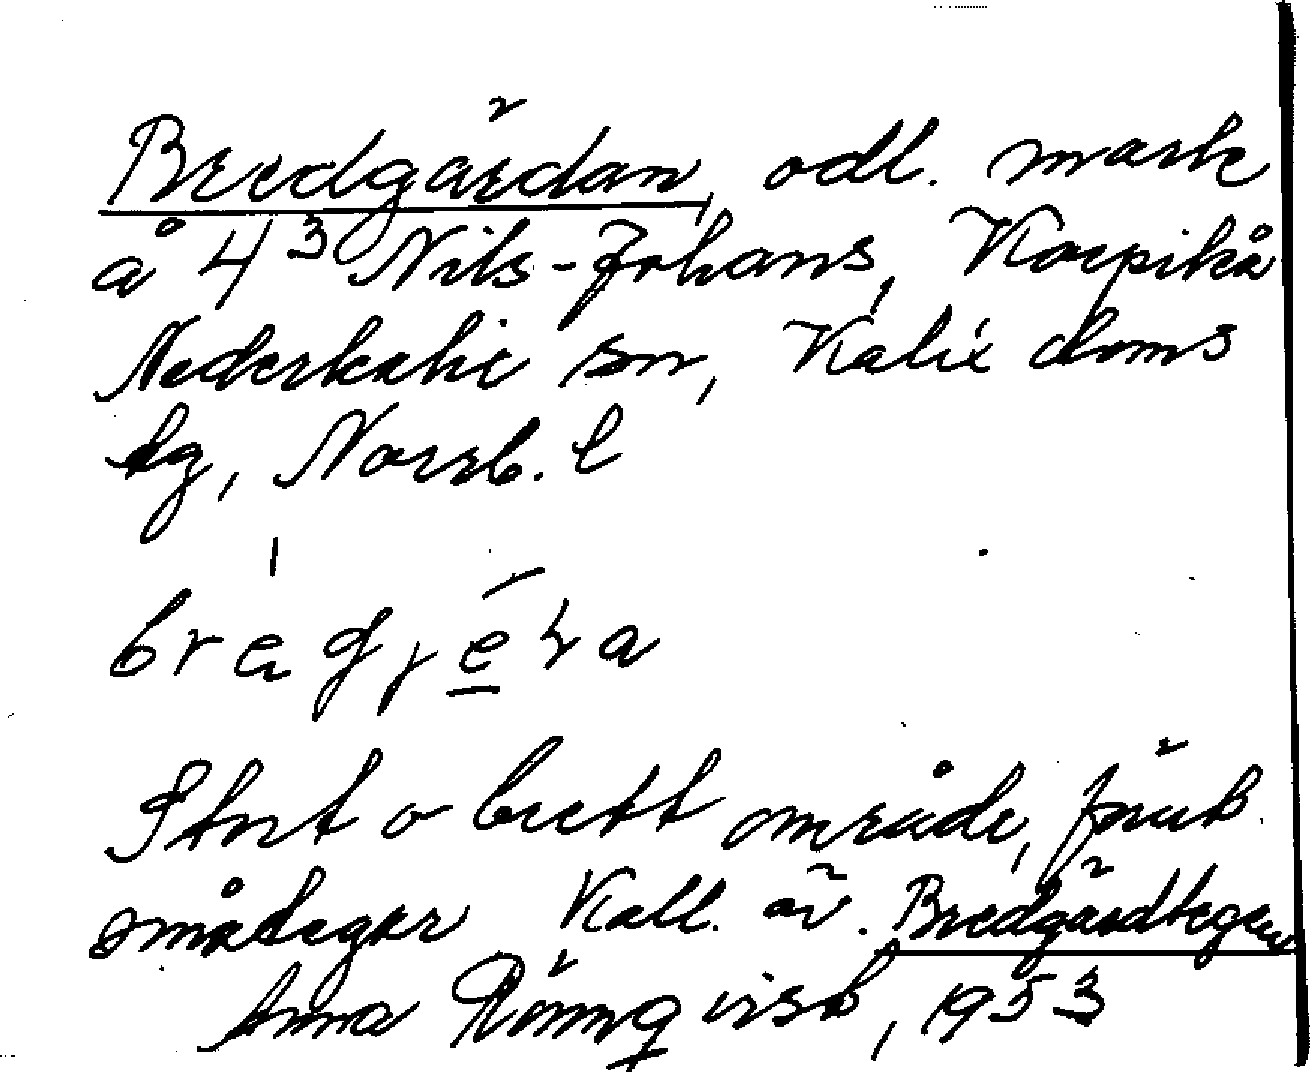 Bredgärdan, odl. mark
å 4³ Nils-Johans, Korpikå
Nederkalix sn, Kalix doms
tg, Norrb. l
Stort o brett område, förut
småtegar Kall. äv. Bredgärdtegen
Anna Rönnqvist, 1953